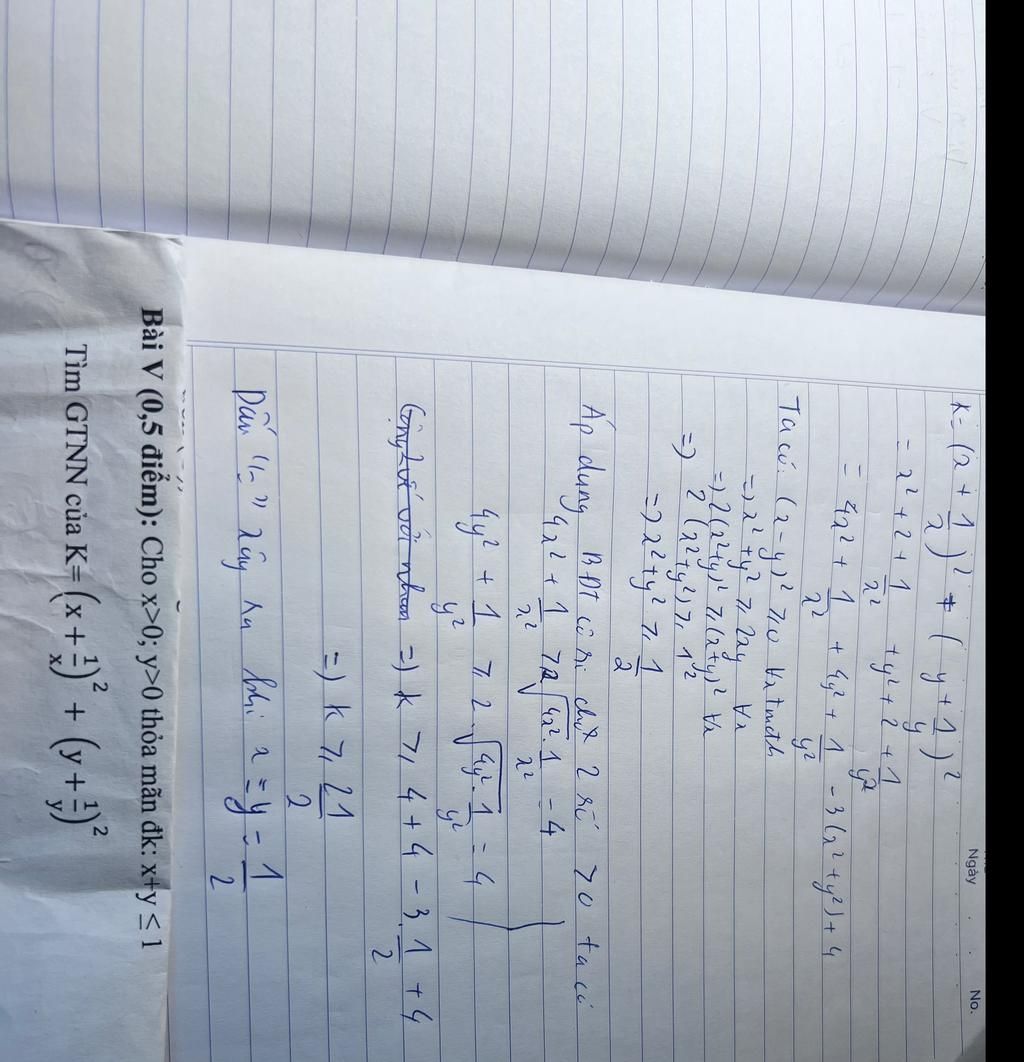 Ngày No.
K = (x + 1/x)² + (y + 1/y)²
= x² + 2 + 1/x² + y² + 2 + 1/y²
= 4x² + 1/x² + 4y² + 1/y² - 3(x² + y²) + 4
Ta có (x - y)² ≥ 0 ∀x
=> x² + y² ≥ 2xy ∀x
=> 2(x² + y²) ≥ (x + y)² ∀x
=> 2(x² + y²) ≥ 1²
=> x² + y² ≥ 1/2
Áp dụng BĐT cô si cho 2 số > 0 ta có
4x² + 1/x² ≥ 2√(4x² · 1/x²) = 4
4y² + 1/y² ≥ 2√(4y² · 1/y²) = 4
=> K ≥ 4 + 4 - 3 · 1/2 + 4
=> K ≥ 21/2
Dấu "=" xảy ra khi x = y = 1/2
Bài V (0,5 điểm): Cho x>0; y>0 thỏa mãn đk: x+y ≤ 1
Tìm GTNN của K= (x + 1/x)² + (y + 1/y)²